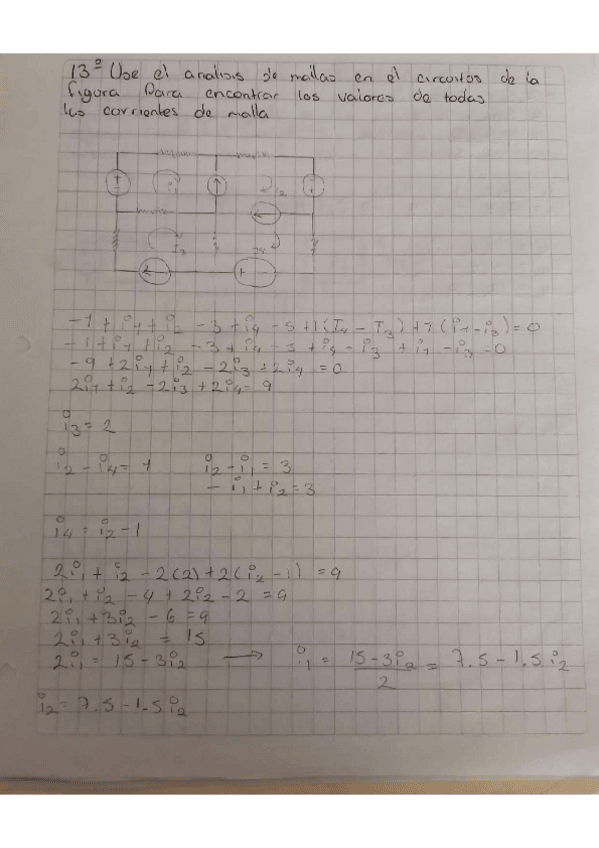 13º Use el analisis de mallas en el circuitos de la
figura Para encontrar los valores de todas
las corrientes de malla
i2
I3
-1 + i1 + i2 - 3 + i4 - 5 + 1(I4 - I3) + 1(i1 - i3) = 0
-1 + i1 + i2 - 3 + i4 - 5 + i4 - i3 + i1 - i3 = 0
-9 + 2i1 + i2 - 2i3 + 2i4 = 0
2i1 + i2 - 2i3 + 2i4 = 9
i3 = 2
i2 - i4 = 1 i2 - i1 = 3
- i1 + i2 = 3
i4 = i2 - 1
2i1 + i2 - 2(2) + 2(i2 - 1) = 9
2i1 + i2 - 4 + 2i2 - 2 = 9
2i1 + 3i2 - 6 = 9
2i1 + 3i2 = 15
2i1 = 15 - 3i2 → i1 = 15 - 3i2 / 2 = 7.5 - 1.5i2
i2 = 7.5 - 1.5i2